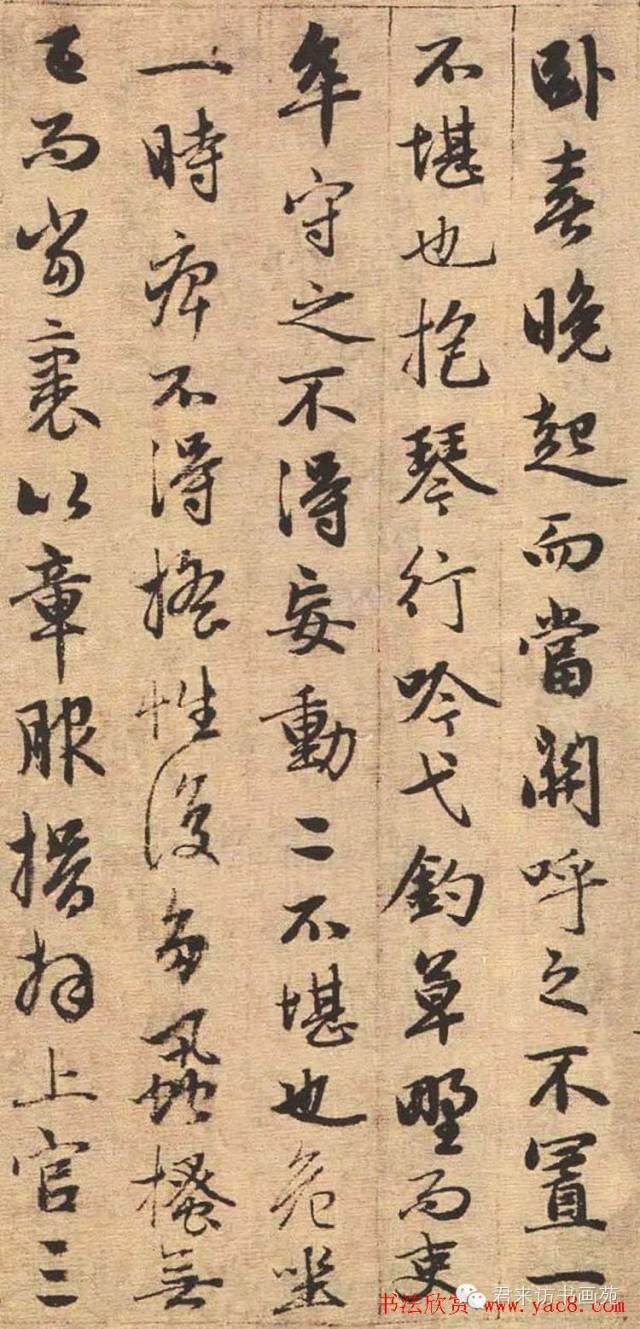 卧喜晚起而當關呼之不置一
不堪也抱琴行吟弋釣草野而吏
卒守之不得妄動二不堪也危坐
一時痺不得搖性復多蝨搔無
已而當裹以章服揖拜上官三
君来访书画苑
书法欣赏www.yac8.com